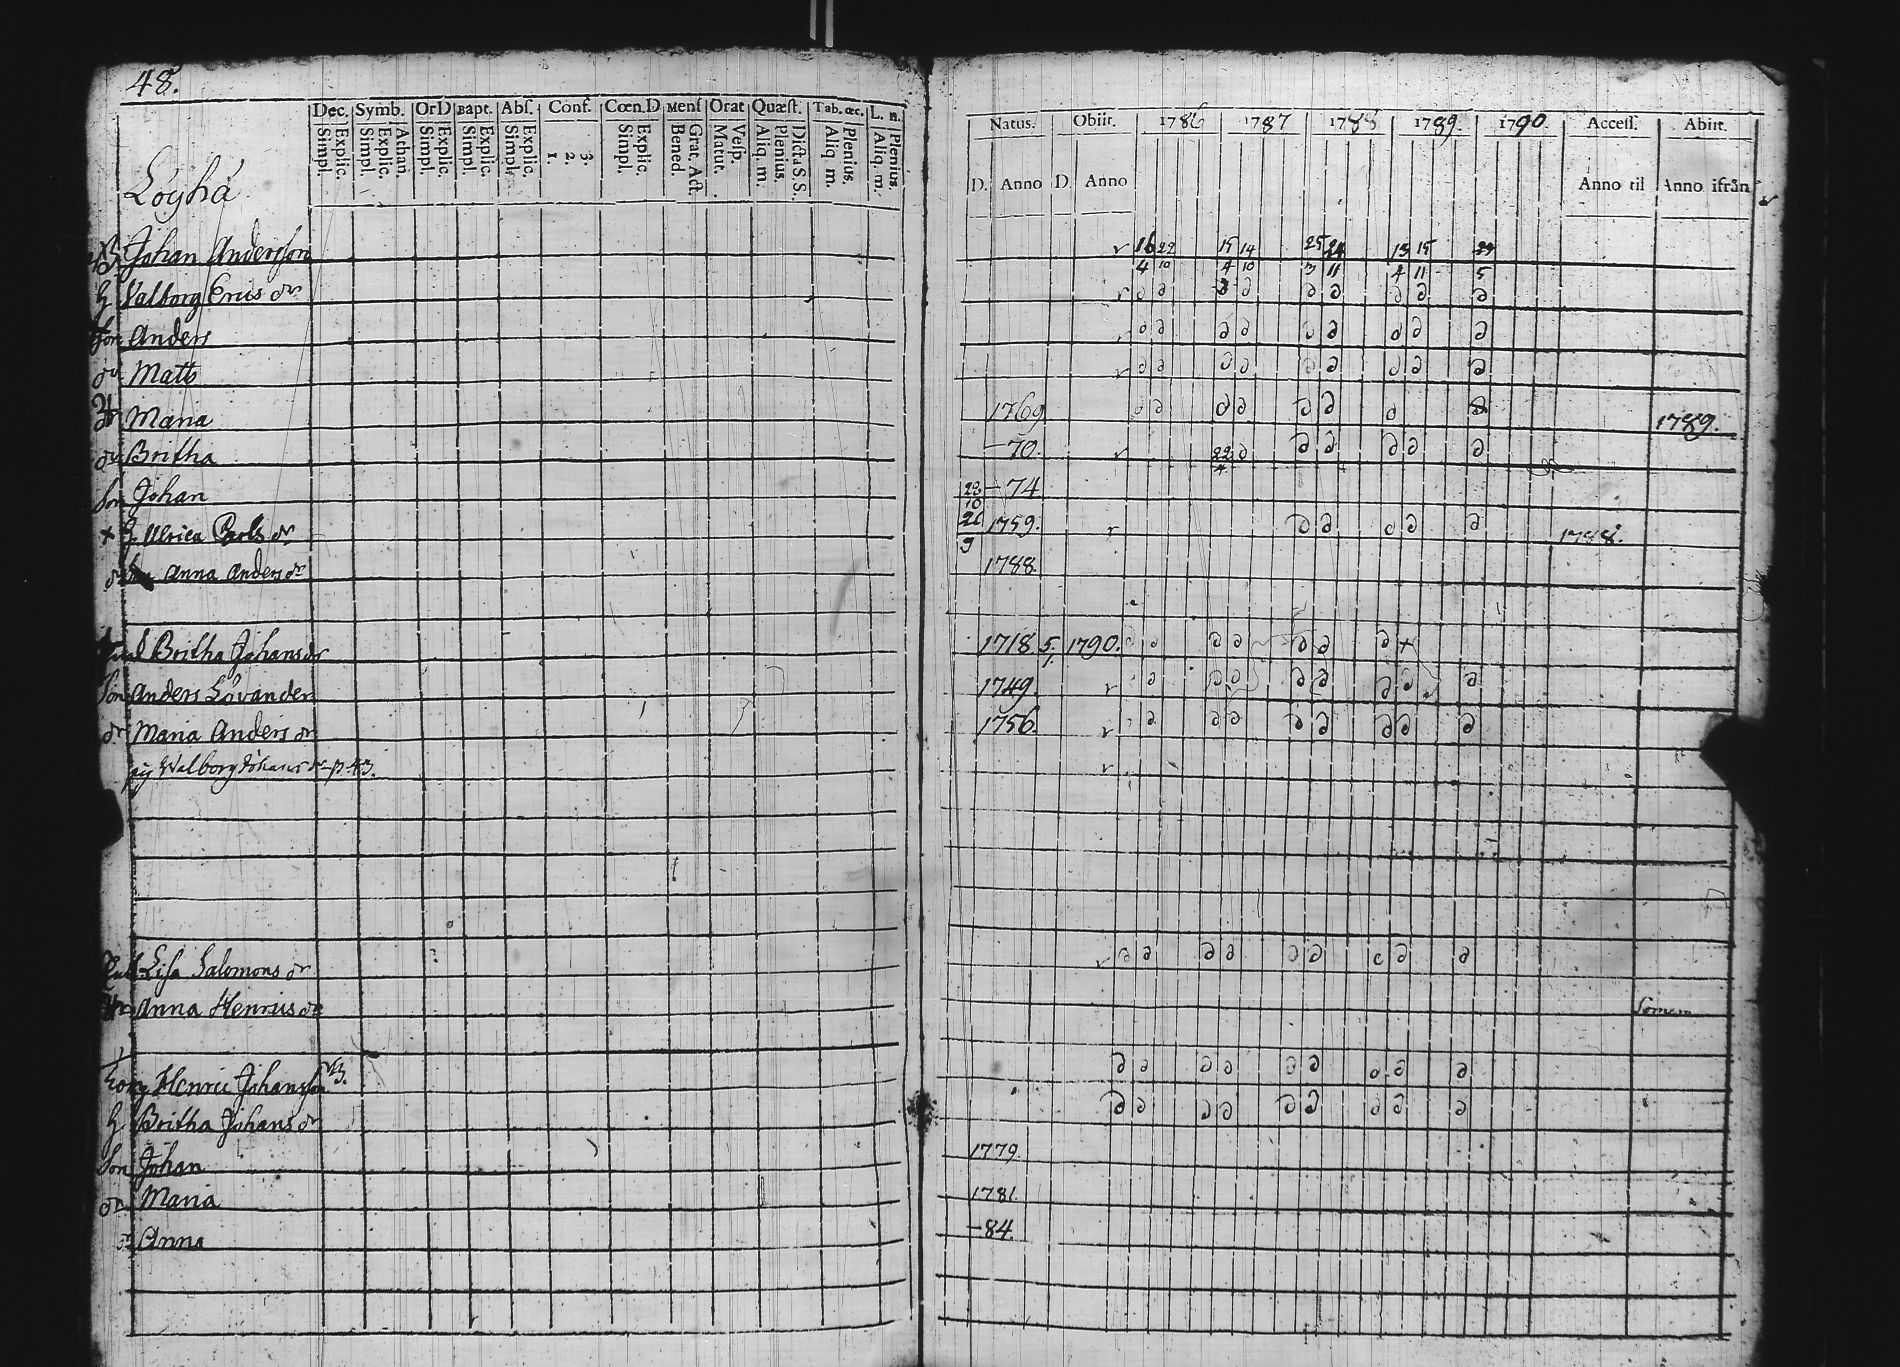 48.
Dec. Symb. Or D Bapt. Abſ. Conf. Cœn. D Menſ Orat Quæſt. Tab. œc. L. n. Natus. Obiit. 1786 1787 1788 1789. 1790. Acceſſ. Abiit.
Simpl. Explic. Simpl. Athan. Simpl. Explic. Simpl. Explic. Simpl. Explic. 1. 2. 3. Simpl. Explic. Bened. Grat. Act. Matut. Veſp. Aliq. m. Plenius. Dicta S.S. Aliq. m. Plenius. Aliq. m. Plenius. D. Anno D. Anno Anno til Anno ifrån
Löyhä
Johan Andersson 16/4 22/10 15/4 14/10 25/3 24/11 13/4 15/11 5
h Valborg Erics dr
Son Anders
dr Matts
dr Maria 1769 1789.
dr Britha -70. 22/4
Son Johan 28/10 -74
+ h Ulrica dr 26/9 1759. 1788.
Anna Anders dr 1788.
Britha Johans dr 1718 5/1 1790. +
Son Anders Lövander 1749.
dr Maria Anders dr 1756.
pig Walborg Johans dr p. 43.
Lisa Salomons dr
Anna Henrics dr
Henric Johansson
h Britha Johans dr
Son Johan 1779.
dr Maria 1781.
dr Anna -84.